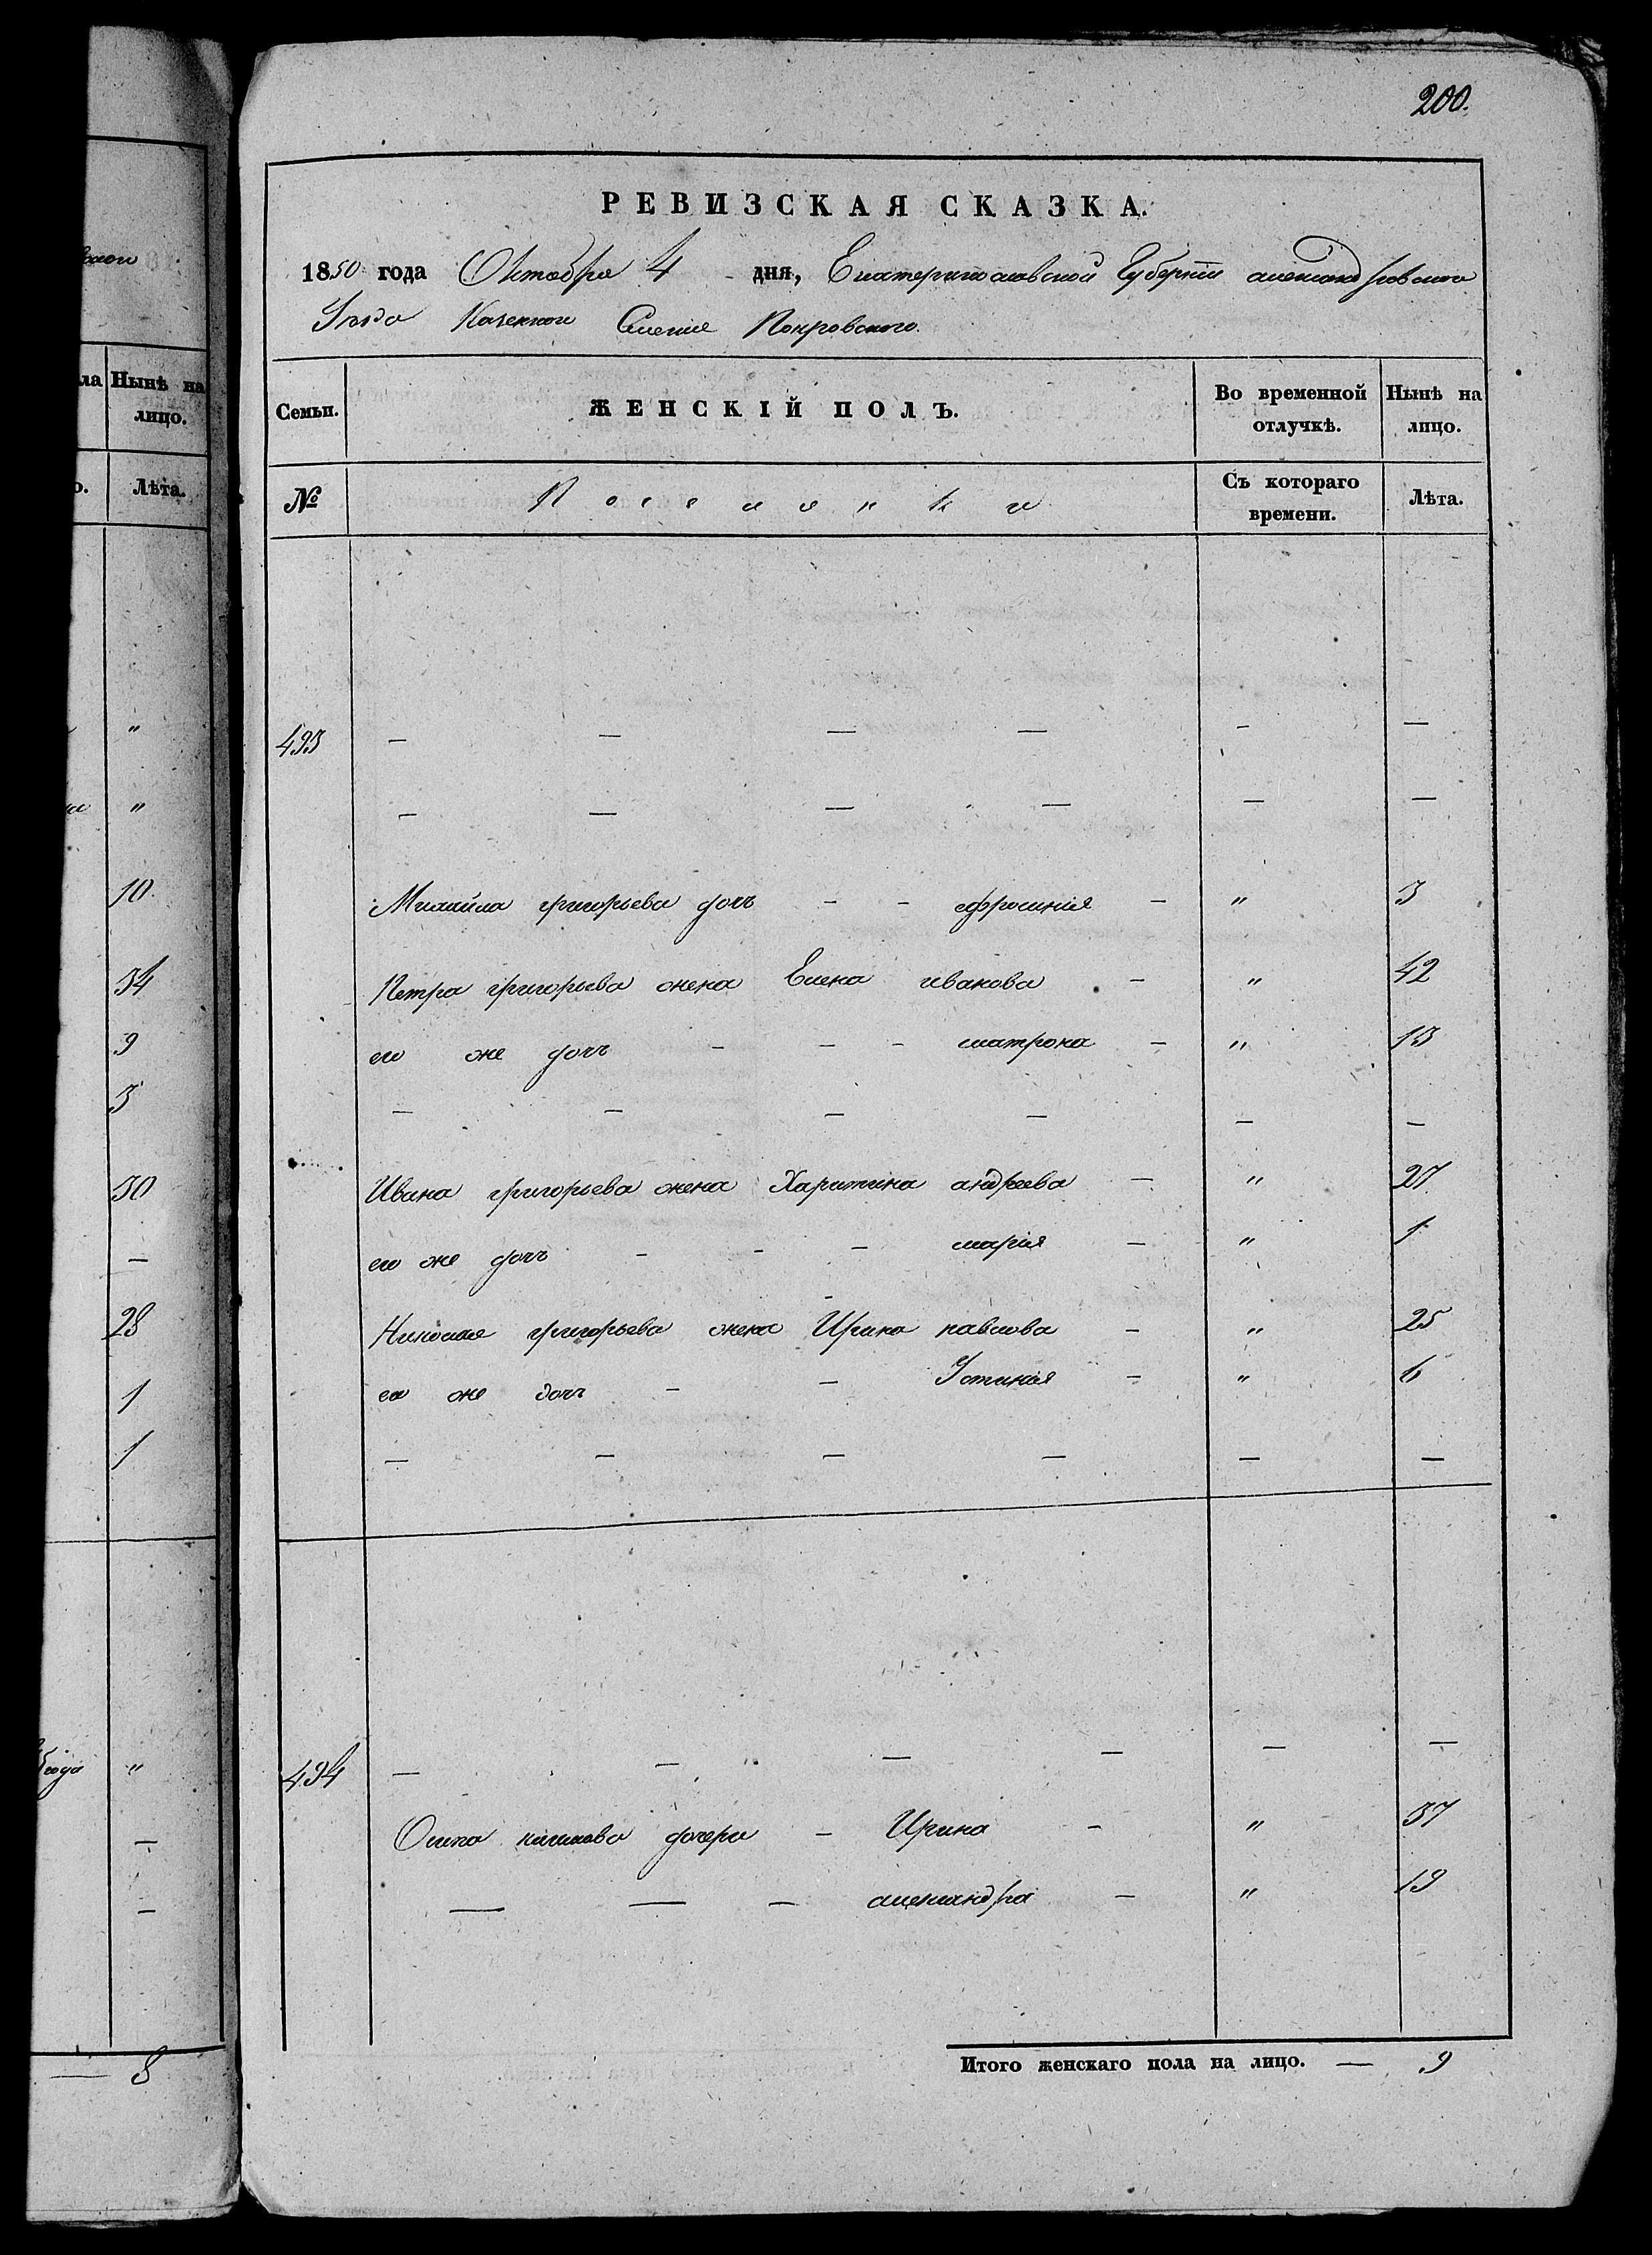 200.
РЕВИЗСКАЯ СКАЗКА.
1850 года Октября 4 дня, Екатеринославской Губерніи александровского
Уезда Казенного Селенія Покровского.
Семьи. ЖЕНСКІЙ ПОЛЪ. Во временной отлучкѣ. Нынѣ на лицо.
№ Поселянки Съ котораго времени. Лѣта.
493 — — — — — —
— — — — — —
Михайла григорьева дочь - - ефросинія - " 3
Петра григорьева жена Елена иванова - " 42
его же дочь - - - матрона - " 13
— — — — — —
Ивана григорьева жена Харитина андреева - " 27
его же дочь - - - марія - " 1
Николая григорьева жена Ирина павлова - " 25
его же дочь - - Устинія - " 6
— — — — — —
494 — — — — — —
Осипа дочери - Ирина - " 37
— — - александра - " 19
Итого женскаго пола на лицо. — 9
ла Нынѣ на лицо.
о. Лѣта.
"
"
10
34
9
3
30
—
28
1
1
года "
—
—
— 8